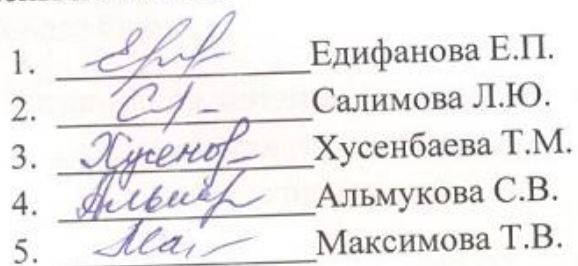 1. Едифанова Е.П.
2. Салимова Л.Ю.
3. Хусенбаева Т.М.
4. Альмукова С.В.
5. Максимова Т.В.